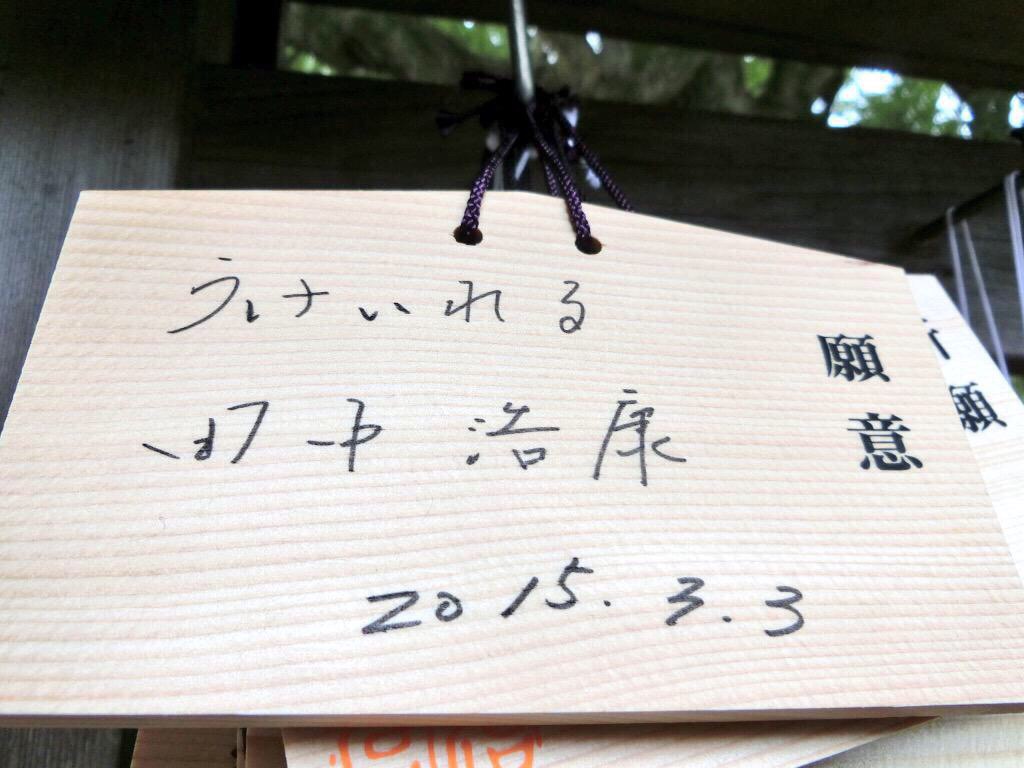 うけいれる
田中浩康
2015.3.3
願意
願